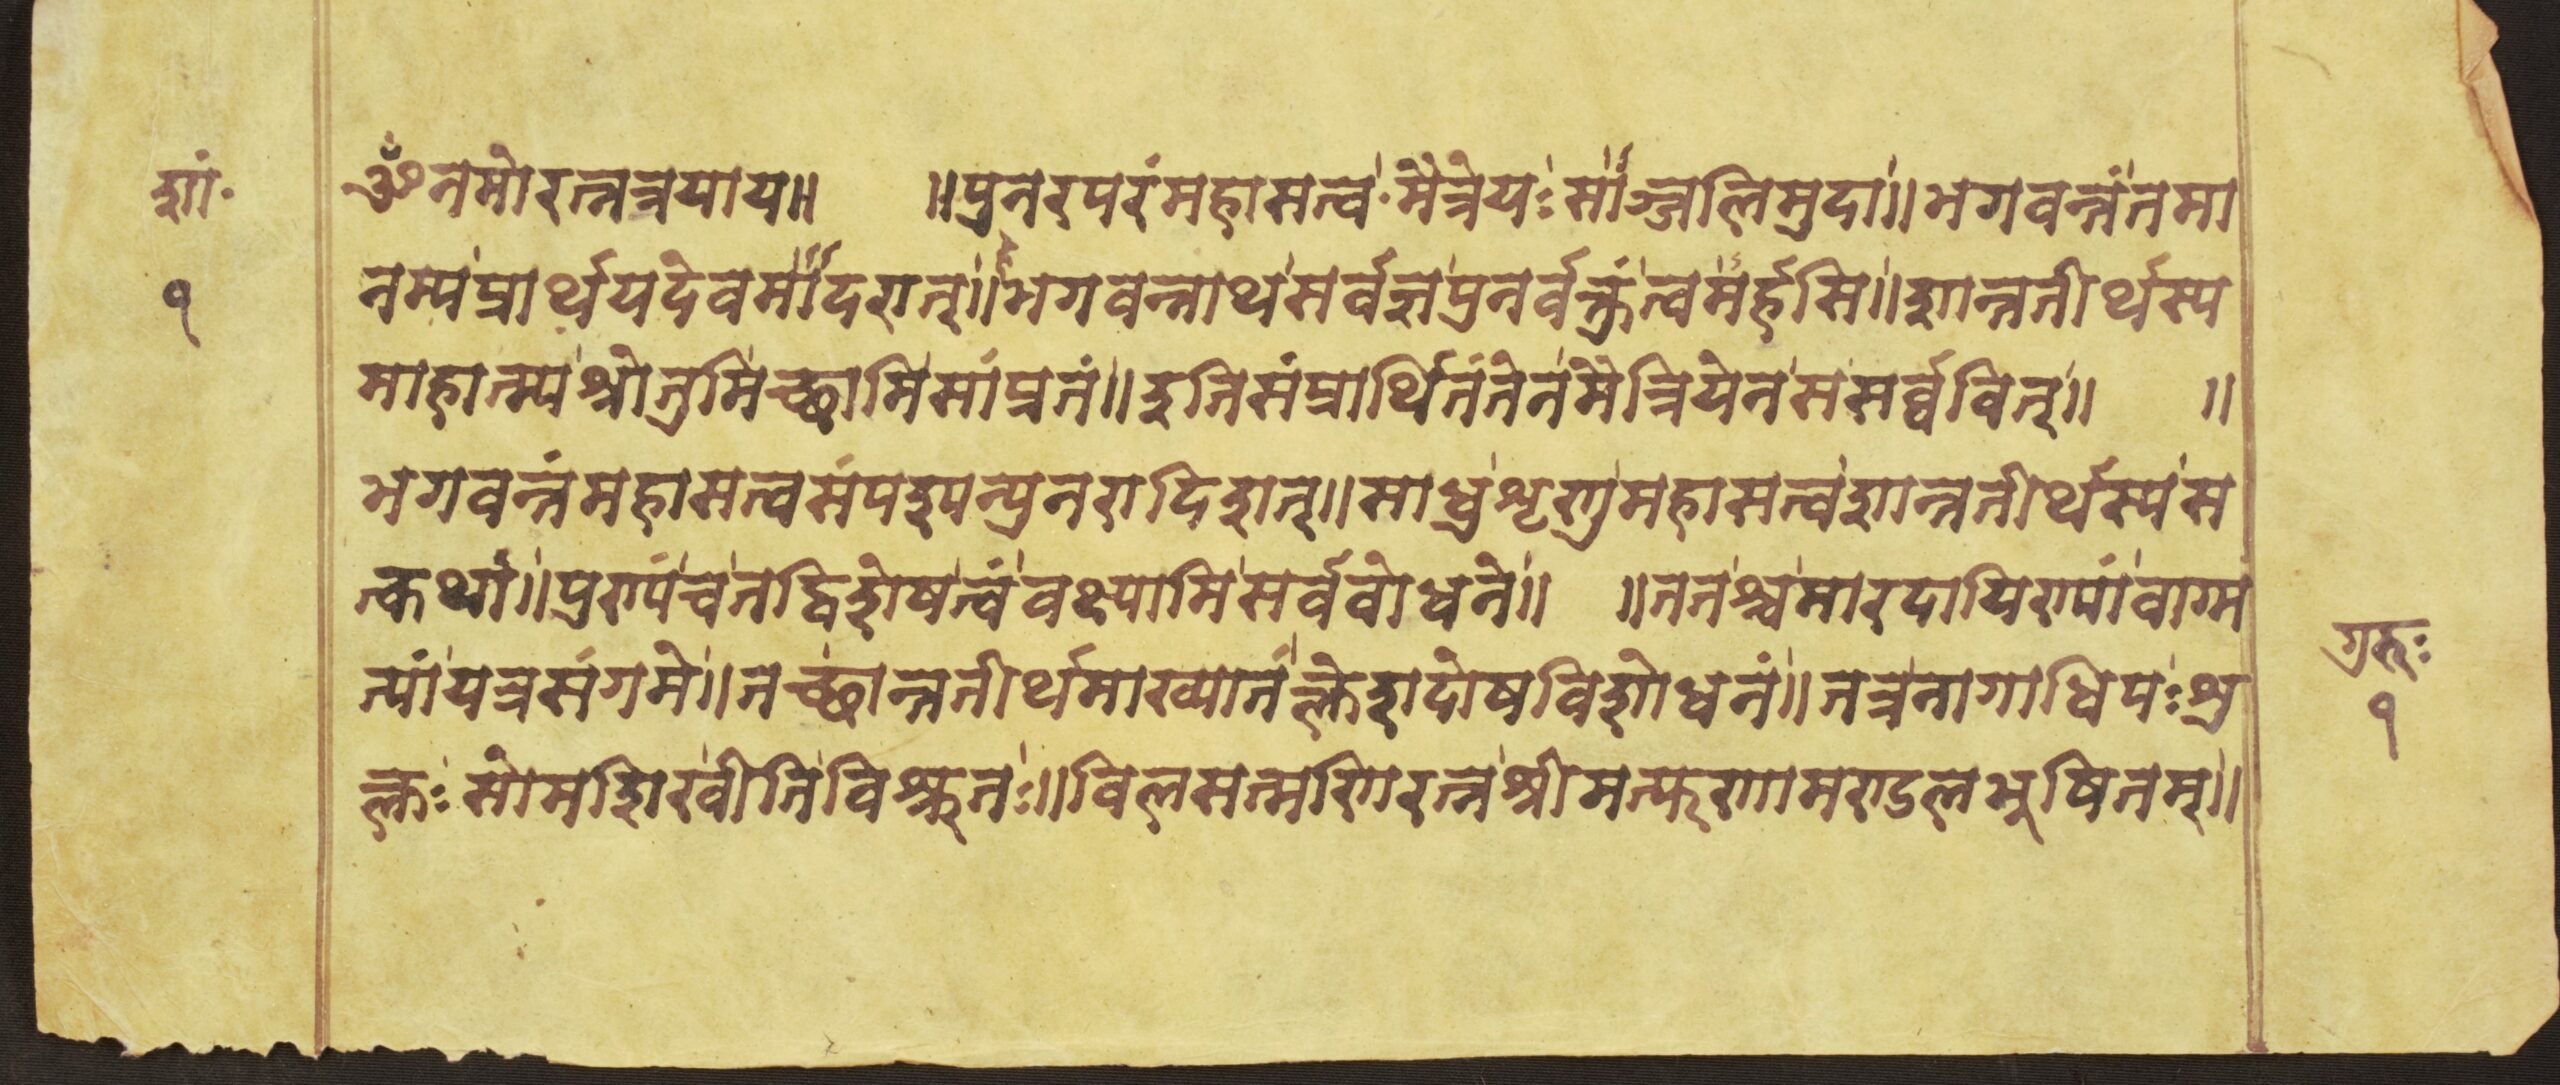 शां·
१
ॐ नमो रत्नत्रयाय॥ ॥पुनरपरं महासत्व· मैत्रेयः साञ्जलि मुदा॥ भगवन्तं तमा
नम्य प्रार्थयदेवमादरात्॥ भगवन्नाथ सर्वज्ञ पुनर्वक्तुं त्वमर्हसि॥ शान्ततीर्थस्य
माहात्म्य श्रोतुमिच्छामि सांप्रतं॥ इति संप्रार्थितं तेन मैत्रियेन स सर्व्ववित्॥ ॥
भगवन्तं महासत्व संपश्यन्पुनरादिशत्॥ साधु शृणु महासत्व शान्ततीर्थस्य स
त्कथां॥ पुण्यं च तद्विशेषत्वं वक्ष्यामि सर्वबोधने॥ ॥ततश्च मारदायिण्यां वाग्म
त्यां यत्र संगमे॥ तच्छान्ततीर्थमाख्यातं क्लेशदोषविशोधनं॥ तत्र नागाधिपः शु
क्लः सोमशिखीति विश्रुतः॥ विलसन्मणिरत्न श्रीमत्फणामण्डलभूषितम्॥
गुरुः
१